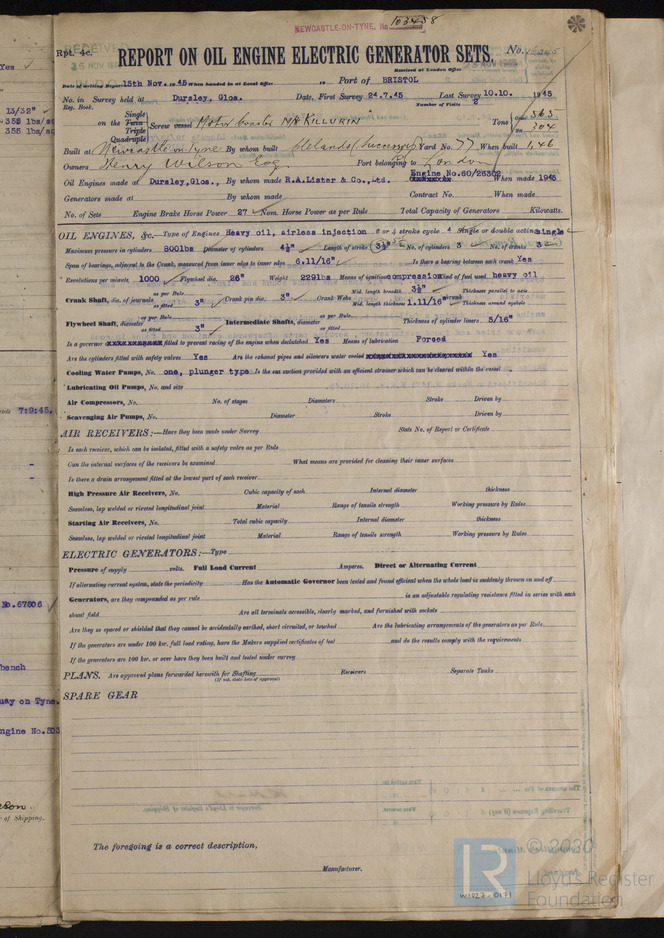 NEWCASTLE-ON-TYNE, No 103438
Rpt. 4c. REPORT ON OIL ENGINE ELECTRIC GENERATOR SETS. No.
Received at London Office
Date of writing Report 15th Nov. 1945 When handed in at Local Office 19 Port of BRISTOL
No. in Reg. Book. Survey held at Dursley, Glos. Date, First Survey 24.7.45 Last Survey 10.10. 1945
Number of Visits 2
on the Single Twin Triple Quadruple Screw vessel Motor Coaster MV KILLURIN Tons 563 304
Built at Newcastle on Tyne By whom built Clelands (Successors) Yard No. 77 When built 1,46
Owners Henry Wilson Esq. Port belonging to London
Oil Engines made at Dursley, Glos., By whom made R.A.Lister & Co., Ltd. Engine No.60/26302 When made 1945
Generators made at By whom made Contract No. When made
No. of Sets Engine Brake Horse Power 27 Nom. Horse Power as per Rule Total Capacity of Generators Kilowatts.
OIL ENGINES, &c.—Type of Engines Heavy oil, airless injection 2 or 4 stroke cycle 4 Single or double acting single
Maximum pressure in cylinders 800lbs Diameter of cylinders 4½" Length of stroke No. of cylinders 3 No. of cranks 3
Span of bearings, adjacent to the Crank, measured from inner edge to inner edge 6.11/16" Is there a bearing between each crank Yes
Revolutions per minute 1000 Flywheel dia. 26" Weight 229lbs Means of ignition compression Kind of fuel used heavy oil
Crank Shaft, dia. of journals as per Rule as fitted 3" Crank pin dia. 3" Crank Webs Mid. length breadth 3½" Mid. length thickness 1.11/16" Thickness parallel to axis Thickness around eyehole
Flywheel Shaft, diameter as per Rule as fitted 3" Intermediate Shafts, diameter as per Rule as fitted Thickness of cylinder liners 5/16"
Is a governor fitted to prevent racing of the engine when declutched Yes Means of lubrication Forced
Are the cylinders fitted with safety valves Yes Are the exhaust pipes and silencers water cooled Yes
Cooling Water Pumps, No. one, plunger type Is the sea suction provided with an efficient strainer which can be cleared within the vessel
Lubricating Oil Pumps, No. and size
Air Compressors, No. No. of stages Diameters Stroke Driven by
Scavenging Air Pumps, No. Diameter Stroke Driven by
AIR RECEIVERS:—Have they been made under Survey State No. of Report or Certificate
Is each receiver, which can be isolated, fitted with a safety valve as per Rule
Can the internal surfaces of the receivers be examined What means are provided for cleaning their inner surfaces
Is there a drain arrangement fitted at the lowest part of each receiver
High Pressure Air Receivers, No. Cubic capacity of each Internal diameter thickness
Seamless, lap welded or riveted longitudinal joint Material Range of tensile strength Working pressure by Rules
Starting Air Receivers, No. Total cubic capacity Internal diameter thickness
Seamless, lap welded or riveted longitudinal joint Material Range of tensile strength Working pressure by Rules
ELECTRIC GENERATORS:—Type
Pressure of supply volts. Full Load Current Amperes. Direct or Alternating Current
If alternating current system, state the periodicity Has the Automatic Governor been tested and found efficient when the whole load is suddenly thrown on and off
Generators, are they compounded as per rule is an adjustable regulating resistance fitted in series with each
shunt field Are all terminals accessible, clearly marked, and furnished with sockets
Are they so spaced or shielded that they cannot be accidentally earthed, short circuited, or touched Are the lubricating arrangements of the generators as per Rule
If the generators are under 100 kw. full load rating, have the Makers supplied certificates of test and do the results comply with the requirements
If the generators are 100 kw. or over have they been built and tested under survey
PLANS. Are approved plans forwarded herewith for Shafting Receivers Separate Tanks
(If not, state date of approval)
SPARE GEAR
The foregoing is a correct description,
Manufacturer.
Yes
13/32"
355 lbs/sq
355 lbs/sq
7:9:45.
No.67606
bench
uay on Tyne.
ngine No.503
of Shipping.
© 2020
Lloyd's Register
Foundation
LR
W1027-0171